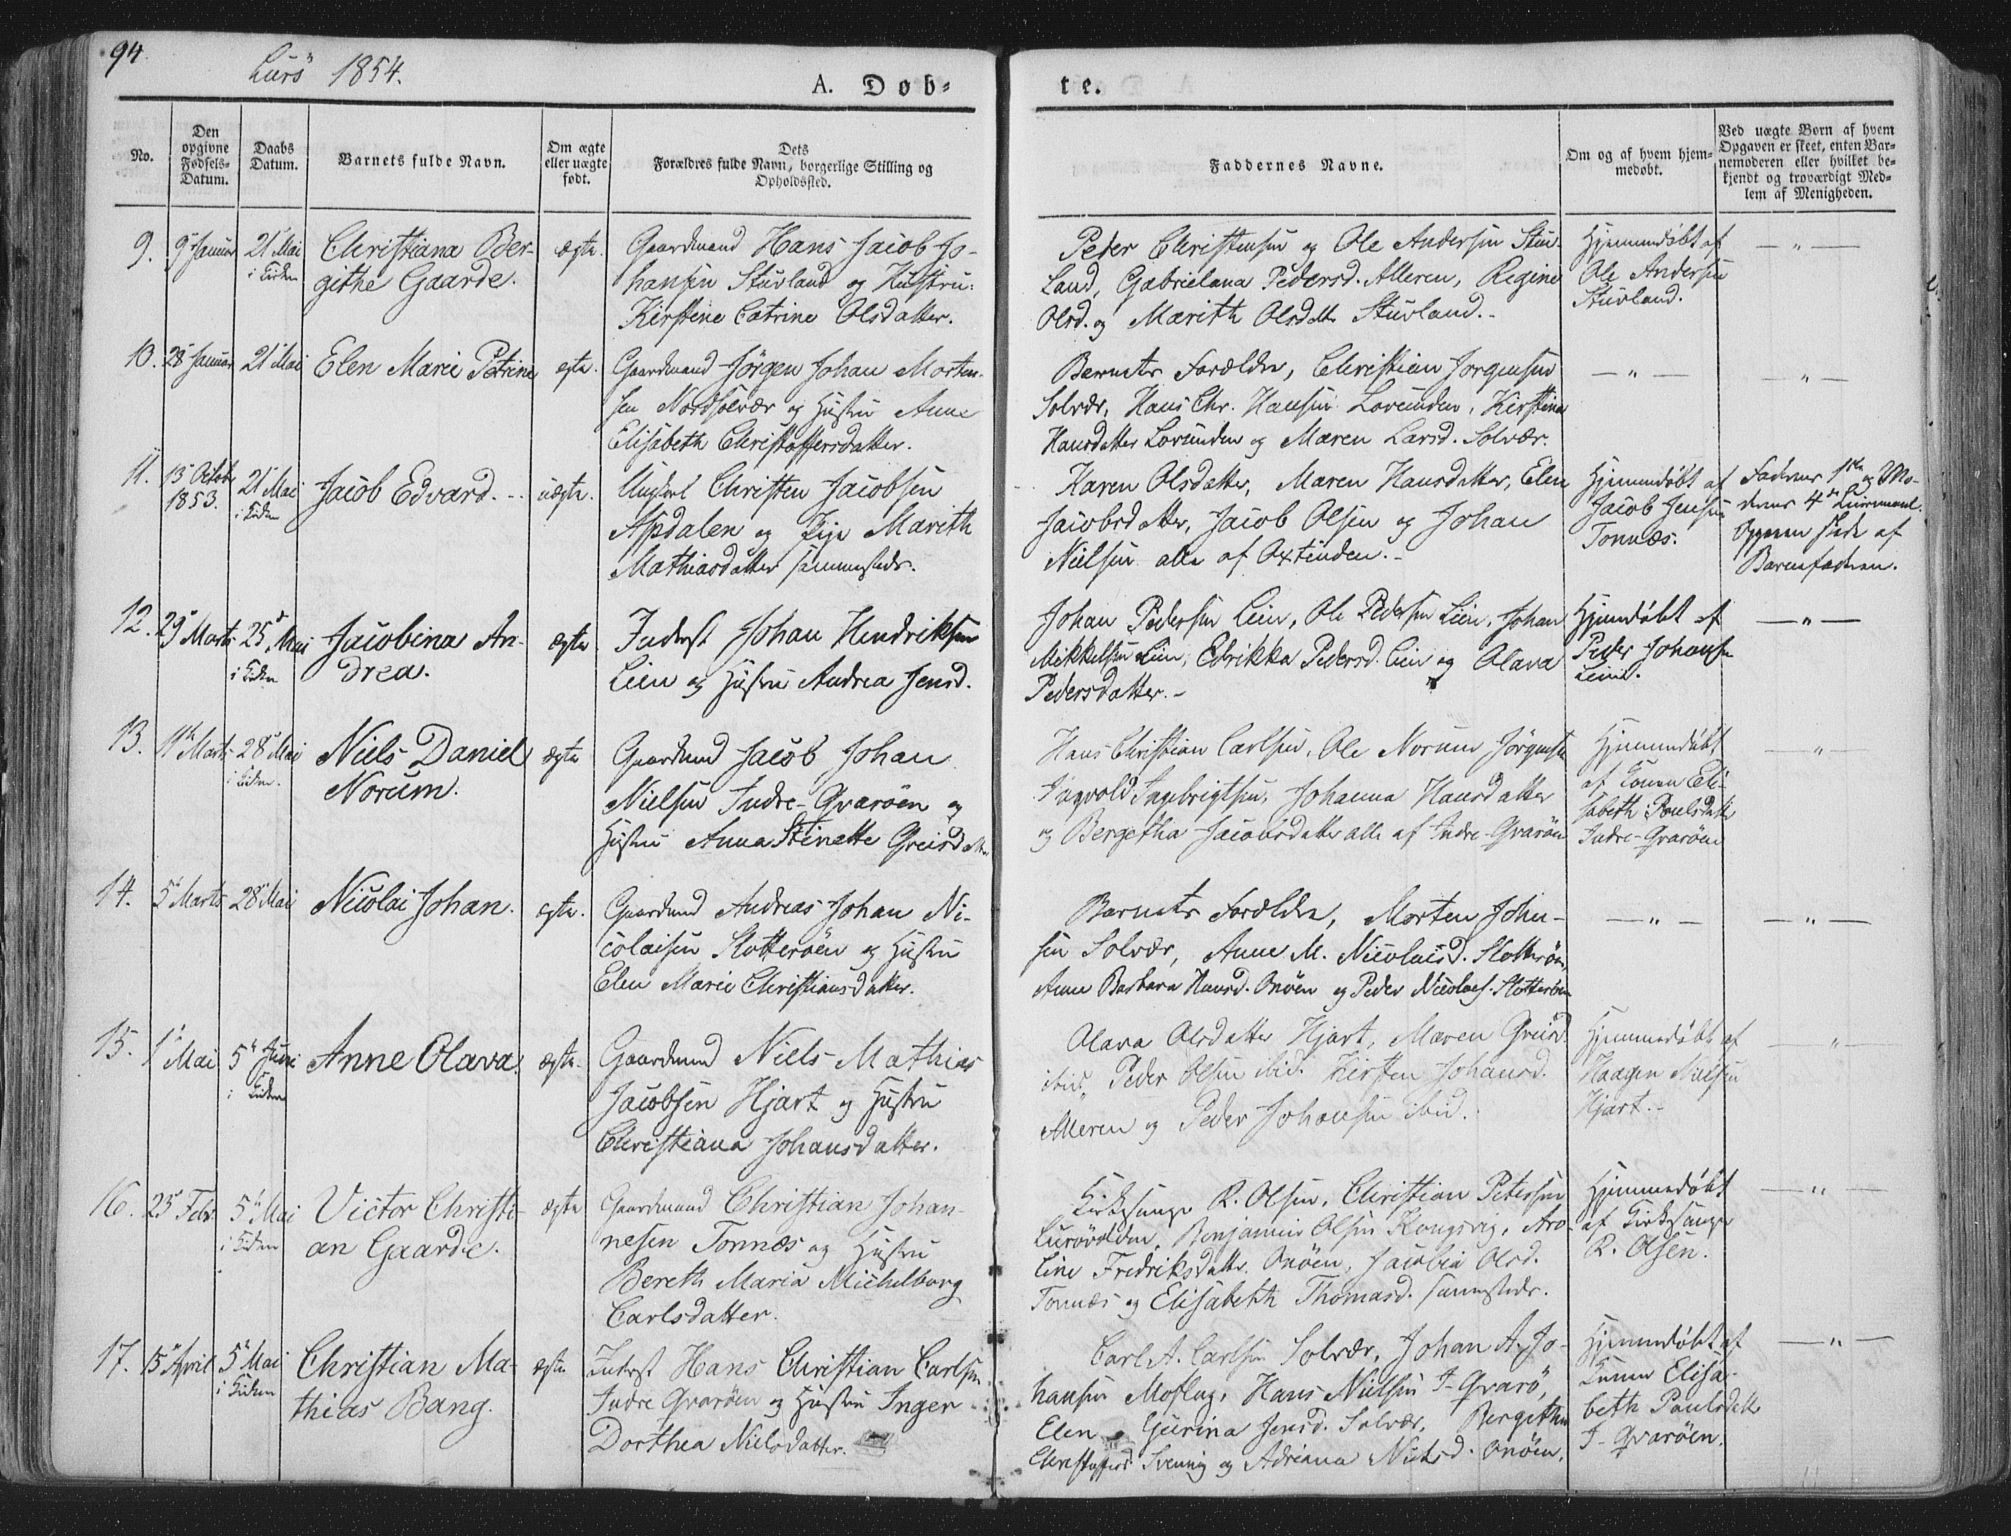 94.
Lurö 1854.
A. Døb-
te.
No.
Den opgivne Fødsels-Datum.
Daabs Datum.
Barnets fulde Navn.
Om ægte eller uægte født.
Dets Forældres fulde Navn, borgerlige Stilling og Opholdssted.
Faddernes Navne.
Om og af hvem hjem-
medøbt.
Ved uægte Børn af hvem
Opgaven er skeet, enten Bar-
nemoderen eller hvilket be-
kjendt og troværdigt Med-
lem af Menigheden.
9. 9 Januar 21 Mai i Kirken
Christiana Ber-
githe Gaarde.
ægte.
Gaardmand Hans Jacob Jo-
hansen Stuvland og Hustru:
Kirstine Catrine Olsdatter.
Peder Christensen og Ole Andersen Stuv-
land, Gabrielana Pedersd. Alleren, Regine
Olsd. og Marith Olsdttr Stuvland.
Hjemmedöbt af
Ole Andersen
Stuvland.
— " —
10. 28 Januar 21 Mai
Elen Marie Petrine
egte.
Gaardmand Jörgen Johan Morten-
sen Nordsolvær og Hustru Anne
Elisabeth Christoffersdatter.
Barnets Forældre, Christian Jörgensen
Solvær, Hans Chr. Hansen Lovunden, Kirstina
Hansdatter Lovunden og Maren Larsd. Solvær.
— " —
— " —
11. 13 Octobr 1853. 21 Mai i Kirken
Jacob Edvard.
uægte.
Ungkarl Christen Jacobsen
Aspdalen og Pige Marith
Mathiasdatter sammesteds.
Karen Olsdatter, Maren Hansdatter, Elen
Jacobsdatter, Jacob Olsen og Johan
Nielsen alle af Oxtinden.
Hjemmedöbt af
Jacob Jensen
Tonnæs.
Faderens 1ste og Mo-
derens 4de Leiermaal.
Opgaven skede af
Barnefaderen.
12. 29 Marts 25 Mai i Kirken
Jacobina An-
drea.
ægte.
Inderst Johan Hendriksen
Lien og Hustru Andrea Jensd.
Johan Pedersen Lien, Ole Pedersen Lien, Johan
Mikkelsen Lien, Edrikka Pedersd. Lien og Olava
Pedersdatter.
Hjemdöbt af
Peder Johansen
Lien.
— " —
13. 11 Marts 28 Mai i Kirken.
Niels Daniel
Norum.
ægte
Gaardmand Jacob Johan
Nielsen Indre-Qvaröen og
Hustru Anna Stinette Greisdatter
Hans Christian Carlsen, Ole Norum Jörgensen
Ingvold Ingebrigtsen, Johanna Hansdatter
og Bergetha Jacobsdatter alle af Indre-Qvaröen
Hjemmedöbt
af Konen Eli-
sabeth Poulsdatter
Indre-Qvaröen
— " —
14. 5 Marts 28 Mai
Nicolai Johan.
egte.
Gaardmand Andreas Johan Ni-
colaisen Slotteröen og Hustru
Elen Marie Christiansdatter.
Barnets Forældre, Morten John-
sen Solvær, Anne M. Nicolaisd. Slotteröen,
Anne Barbara Hansd. Onöen og Peder Nicolais. Slotteröen
— " —
— " —
15. 1 Mai 5 Juni i Kirken
Anne Olava.
ægte.
Gaardmand Niels Mathias
Jacobsen Hjart og Hustru
Christiana Johansdatter.
Olava Olsdatter Hjart, Maren Greisd
ibid, Peder Olsen ibid. Kirsten Johansd.
Alleren og Peder Johansen ibid.
Hjemmedöbt af
Haagen Nielsen
Hjart.
— " —
16. 25 Febr. 5 Mai i Kirken
Victor Christi-
an Gaarde.
ægte
Gaardmand Christian Johan-
nesen Tonnæs og Hustru
Bereth Maria Michelborg
Carlsdatter.
Kirkesanger R. Olsen, Christian Petersen
Lurövolden, Benjamin Olsen Kongsvig, Aro-
line Fredriksdatter Onöen, Jacobia Olsd.
Tonnæs og Elisabeth Thomasd. sammesteds.
Hjemmedöbt
af Kirkesanger
R. Olsen.
— " —
17. 15 April 5 Mai i Kirken
Christian Ma-
thias Bang.
ægte
Inderst Hans Christian Carlsen
Indre Qvaröen og Hustru Inger
Dorthea Nielsdatter.
Carl A. Carlsen Solvær, Johan A. Jo-
hansen Moflag, Hans Nielsen I-Qvarö,
Elen Gurina Jensd. Solvær, Bergithe
Christoffersd. Svenning og Adriana Nielsd. Onöen.
Hjemmedöbt af
Konen Elisa-
beth Paulsdatter
I-Qvaröen.
— " —